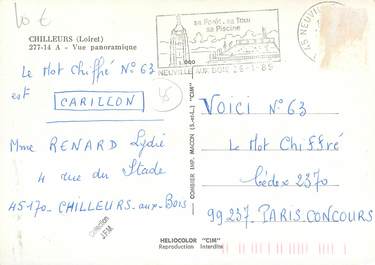 10 €
CHILLEURS (Loiret)
277-14 A - Vue panoramique
sa Forêt, sa Tour
sa Piscine
NEUVILLE AUX BOIS 26-1-89
45 NEUVI
Le Mot Chiffré N° 63
est CARILLON
45
Mme RENARD Lydie
4 rue du Stade
45170 - CHILLEURS-aux-Bois
Collection
J.F.M.
COMBIER IMP. MACON (S.-et-L.) "CIM"
VOICI N° 63
Le Mot Chiffré
Cédex 2370
99237 - PARIS-CONCOURS
HELIOCOLOR "CIM"
Reproduction Interdite